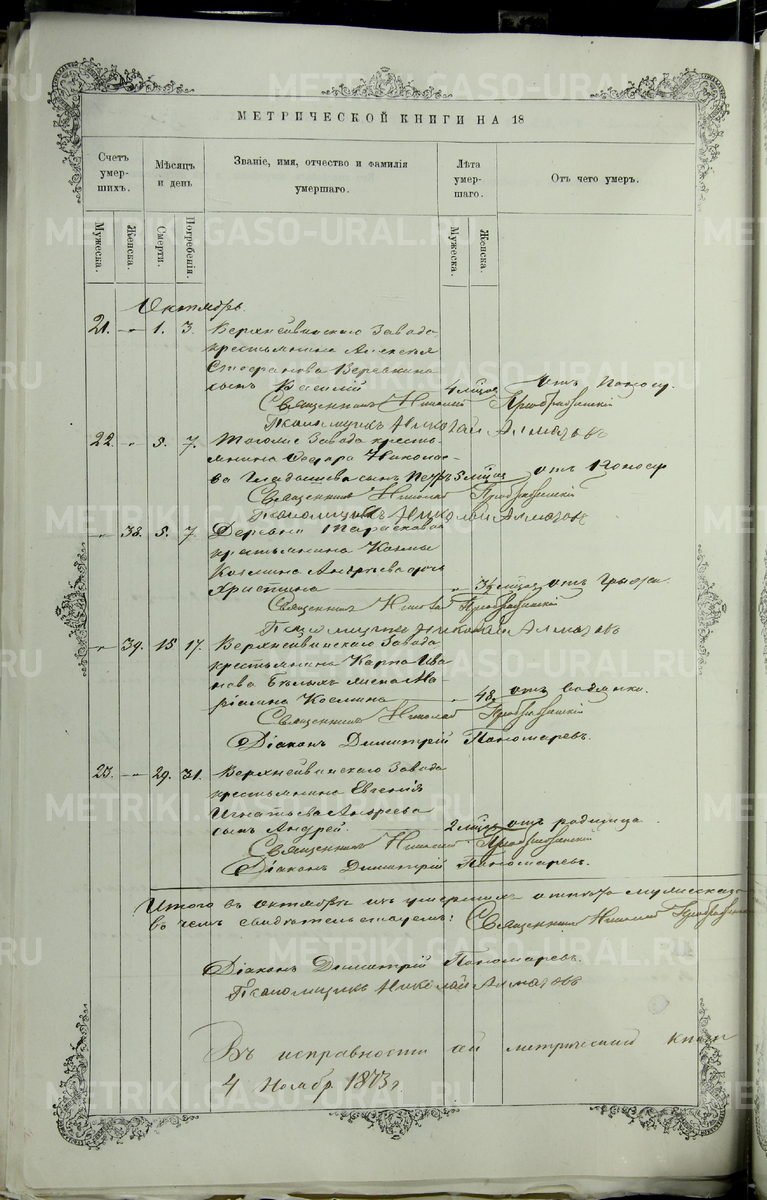 МЕТРИЧЕСКОЙ КНИГИ НА 18
Счетъ умер-шихъ.
Мѣсяцъ и день
Званіе, имя, отчество и фамилія умершаго.
Лѣта умер-шаго.
Отъ чего умеръ.
Мужеска.
Женска.
Смерти.
Погребенія.
Мужеска.
Женска.
Октябрь.
21. - 1. 3. Верхнейвинскаго Завода
крестьянина Алексѣя
Стефанова Веревкина
сынъ Василій 4 мѣсяц. отъ поноса.
Священникъ Николай Преображенскій
Псаломщикъ Николай Алмазовъ
22. " 5. 7. Тогоже Завода кресть-
янина Ѳедора Николае-
ва Гладышева сынъ Петръ 5 мѣсяц. отъ поноса
Священникъ Николай Преображенскій
Псаломщикъ Николай Алмазовъ
" 38. 5. 7. Деревни Тарасковой
крестьянина Козмы
Козмина дочь
Христина " 3½ мѣсяц. отъ грыжи.
Священникъ Николай Преображенскій
Псаломщикъ Николай Алмазовъ
" 39. 15 17. Верхнейвинскаго Завода
крестьянина Карпа Ива
нова Бѣлыхъ жена Ма-
Козмина " 48. отъ водянки.
Священникъ Николай Преображенскій
Діаконъ Димитрій Пономаревъ.
23. - 29. 31. Верхнейвинскаго Завода
крестьянина Евгенія
Игнатьева Андреева
сынъ Андрей. 2 мѣсяц. отъ родимца.
Священникъ Николай Преображенскій
Діаконъ Димитрій Пономаревъ.
Итого въ октябрѣ умершихъ
въ чемъ свидѣтельствуемъ: Священникъ Николай Преображенскій
Діаконъ Димитрій Пономаревъ.
Псаломщикъ Николай Алмазовъ
Въ исправности сей метрической книги
4 Ноябр 1873 г.
METRIKI.GASO-URAL.RU